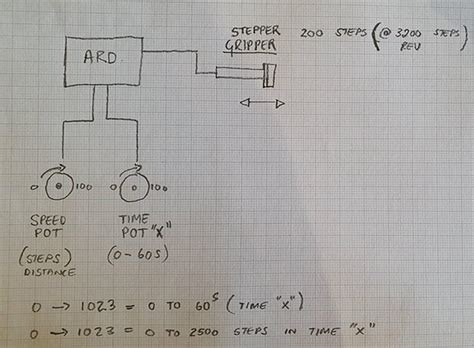 STEPPER GRIPPER
200 STEPS (@ 3200 STEPS REV
ARD.
0 100
0 100
SPEED POT
(STEPS) DISTANCE
TIME POT "X"
(0-60s)
0 → 1023 = 0 TO 60s (TIME "X")
0 → 1023 = 0 TO 2500 STEPS IN TIME "X"